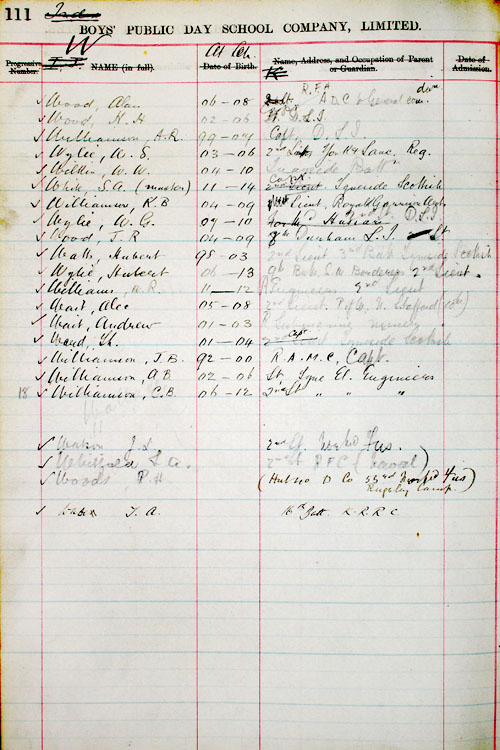 111 Index
BOYS' PUBLIC DAY SCHOOL COMPANY, LIMITED.
W At Sch.
Progressive Number. NAME (in full). Date of Birth. Name, Address, and Occupation of Parent or Guardian. Date of Admission.
R.F.A
✓ Wood, Alan 06-08 ADC to General com. divn
✓ Wood, H. H 02-06 D.L.I
✓ Williamson, A.R. 99-04 Capt. D.L.I
✓ Wylie, W. S. 03-06 2nd Yorks & Lanc. Reg.
✓ Wilkin, W. W. 04-10 Tyneside Battn
✓ White, S.A. (master) 11-14 2nd Lieut Tyneside Scottish
✓ Williamson, R B 04-09 Lieut, Royal Garrison Arty
✓ Wylie, W. G. 07-10 D.L.I
✓ Wood, J. R 04-09 Durham L.I. Lt
✓ Watts, Hubert 98-03 2nd Lieut 3rd Batt Tyneside Scottish
✓ Wylie, Hubert 06-13 9th Bat. S. W Borderers 2nd Lieut.
✓ Williams, H.R. 11-12 Engineers 2nd Lieut
✓ Wait, Alec 05-08 2nd Lieut. P. of W. N. Stafford
✓ Wait, Andrew 01-03
✓ Weud, Ln. 01-04 Capt Tyneside Scottish
✓ Williamson, J. B. 92-00 R.A.M.C, Capt.
✓ Williamson, A B 02-06 Lt. Tyne El. Engineers
18 ✓ Williamson, C.B. 06-12 2nd Lt " " "
✓ Watson J. S 2nd Lt North'd Fus.
✓ Whitfield L. A. 2nd Lt R F C (Naval)
✓ Woods R. H (Hut no D Co 53rd North'd Fus)
Rugeley Camp.
✓ T. A. 16th Batt K.R.R.C